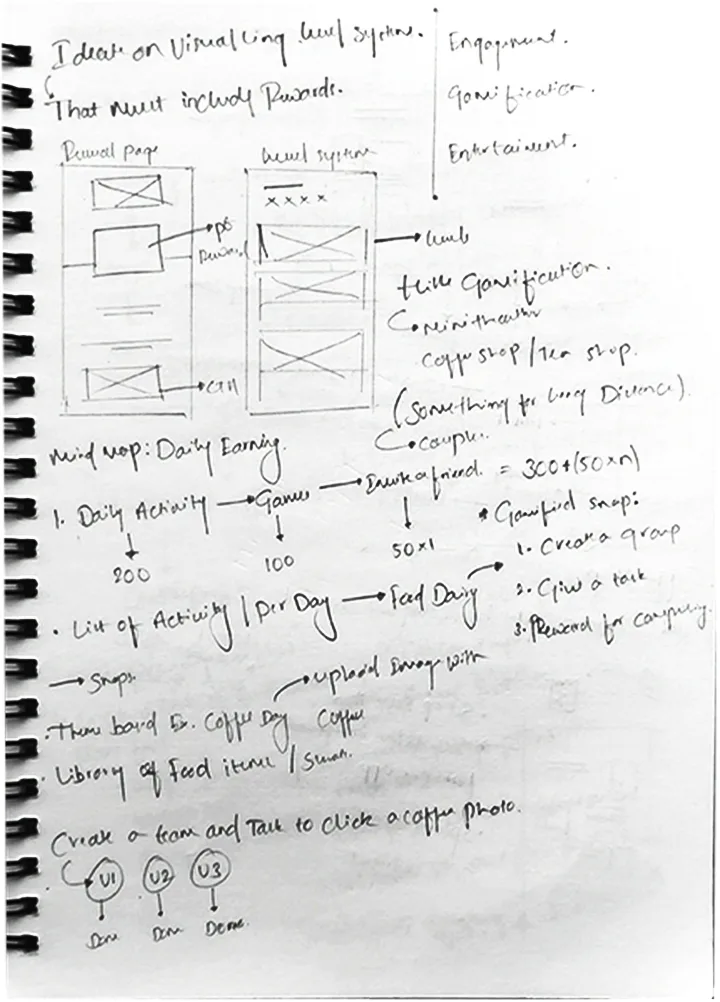 Ideate on Visualizing level system.
That must include Rewards.
Engagement.
Gamification.
Entertainment.
Reward page
level system
x x x x
Reward
CTA
levels
Gamification.
Coffee shop / Tea shop.
(Something for Long Distance)
couples.
Mind map: Daily Earning.
1. Daily Activity → Games → Invite a friend. = 300+(50×n)
200
100
50×1
* Gamified snap:
1. Create a group
2. Give a task
3. Reward for completing.
• List of Activity / per Day → Food Dairy
→ Snaps
Upload Image with
Coffee
• Theme board Ex. Coffee Day
• Library of Food items /
Create a team and Task to click a coffee photo.
U1
U2
U3
Done
Done
Done.